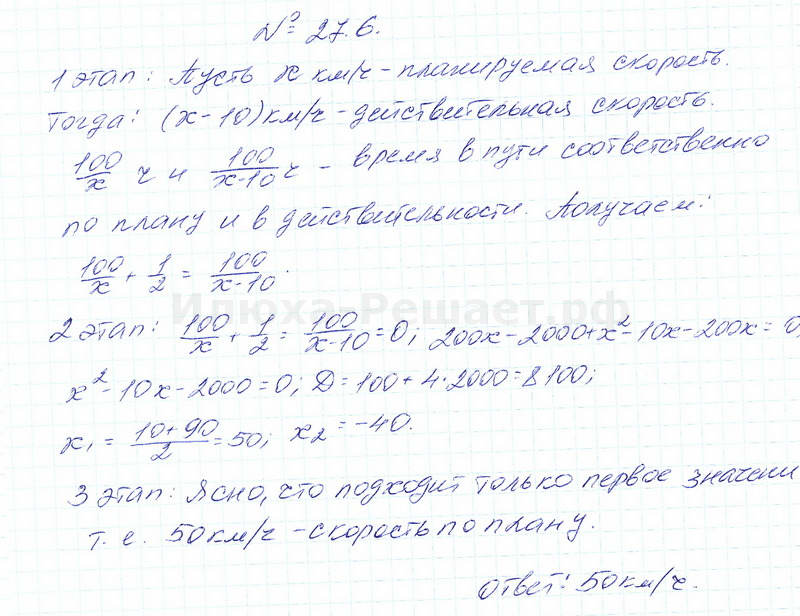 № 27.6.
1 этап: Пусть x км/ч - планируемая скорость.
Тогда: (x-10) км/ч - действительная скорость.
100/x ч и 100/(x-10) ч - время в пути соответственно
по плану и в действительности. Получаем:
100/x + 1/2 = 100/(x-10).
Илюха-Решает.рф
2 этап: 100/x + 1/2 = 100/(x-10) = 0; 200x-2000+x²-10x-200x=0,
x²-10x-2000=0; Д=100+4·2000=8100;
x₁ = (10+90)/2 = 50; x₂ = -40.
3 этап: Ясно, что подходит только первое значени
т. е. 50 км/ч - скорость по плану.
Ответ: 50 км/ч.